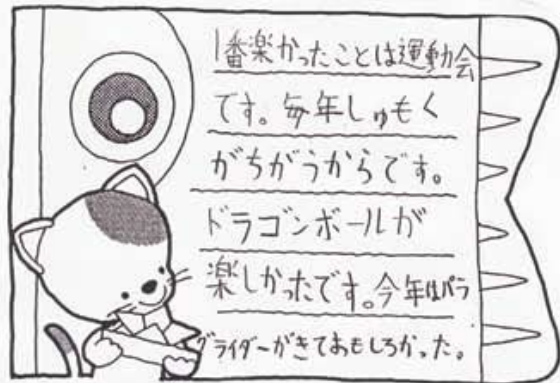 1番楽かったことは運動会
です。毎年しゅもく
がちがうからです。
ドラゴンボールが
楽しかったです。今年はパラ
グライダーがきておもしろかった。